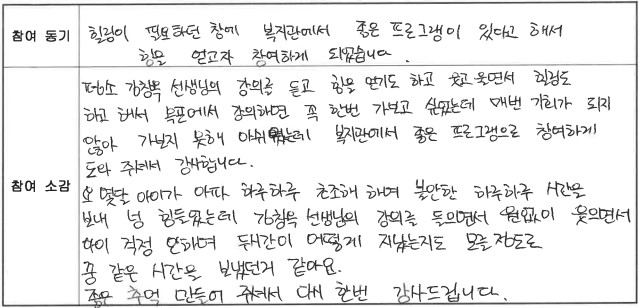 참여 동기
힐링이 필요하던 참에 복지관에서 좋은 프로그램이 있다고 해서
힘을 얻고자 참여하게 되었습니다.
참여 소감
평소 김창옥 선생님의 강의를 듣고 힘을 얻기도 하고 웃고 울면서 힐링도
하고 해서 목포에서 강의하면 꼭 한번 가보고 싶었는데 매번 기회가 되지
않아 가보지 못해 아쉬웠는데 복지관에서 좋은 프로그램으로 참여하게
도와 주셔서 감사합니다.
요 몇달 아이가 아파 하루하루 초조해 하며 불안한 하루하루 시간을
보내 넘 힘들었는데 김창옥 선생님의 강의를 들으면서 원없이 웃으면서
아이 걱정 안하며 두시간이 어떻게 지났는지도 모를정도로
꿈 같은 시간을 보냈던거 같아요.
좋은 추억 만들어 주셔서 다시 한번 감사드립니다.